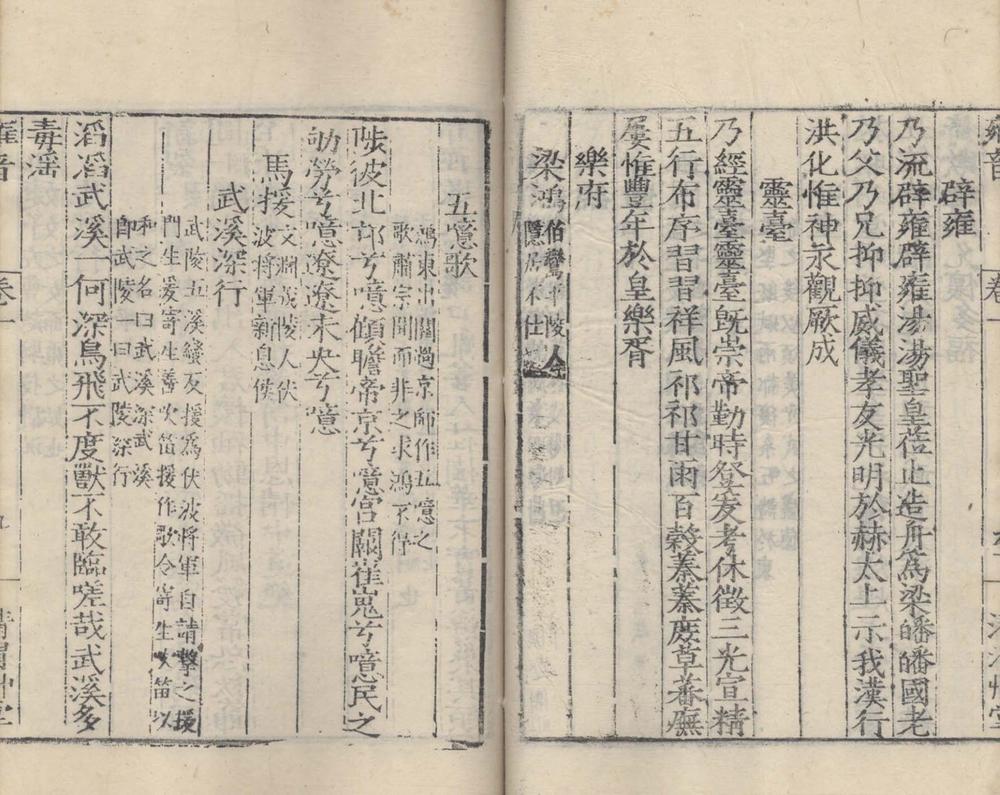 辟雍
乃流辟雍辟雍湯湯聖皇蒞止造舟爲梁皤皤國老
乃父乃兄抑抑威儀孝友光明於赫太上示我漢行
洪化惟神永觀厥成
靈臺
乃經靈臺靈臺旣崇帝勤時登爰考休徵三光宣精
五行布序習習祥風祁祁甘雨百穀蓁蓁庶草蕃廡
屢惟豐年於皇樂胥
樂府
梁鴻伯鸞平陵人
隱居不仕
五噫歌
鴻東出關過京師作五噫之
歌肅宗聞而非之求鴻不得
陟彼北邙兮噫顧瞻帝京兮噫宮闕崔嵬兮噫民之
劬勞兮噫遼遼未央兮噫
馬援文淵茂陵人伏
波將軍新息侯
武溪深行
武陵五溪蠻反援爲伏波將軍自請擊之援
門生爰寄生善吹笛援作歌令寄生吹笛以
和之名曰武溪深武溪
卽武陵一曰武陵深行
滔滔武溪一何深鳥飛不度獸不敢臨嗟哉武溪多
毒淫
雍音 卷一 九